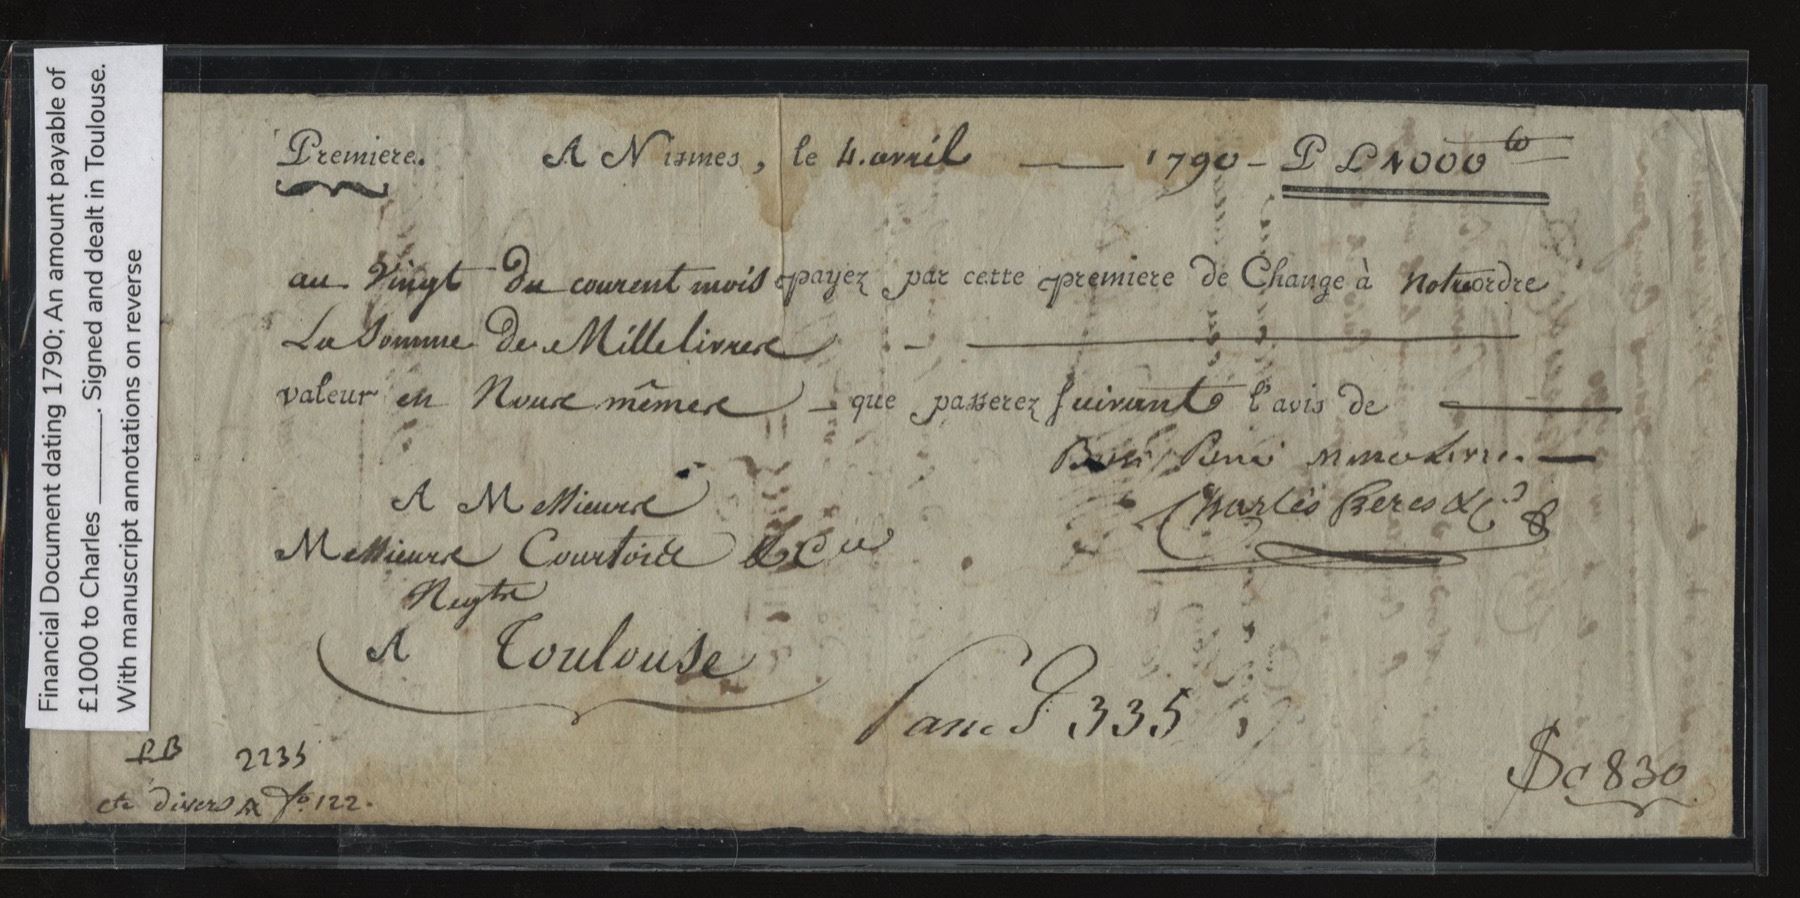 Financial Document dating 1790; An amount payable of
£1000 to Charles ________. Signed and dealt in Toulouse.
With manuscript annotations on reverse
Premiere. A Nismes, le 4. avril 1790 - P L 1000 ₶
au Vingt Du courent mois payez par cette premiere de Change à Notre ordre
La Somme De Mille livres
valeur en Nous mêmes que passerez suivant l'avis de
Bon Pour Mille Livres.
A Messieurs Charles Freres & C.
Messieurs Courtois & Cie
Negts
A Toulouse
P 335
PB 2235
Sc 830
cte divers fo. 122.